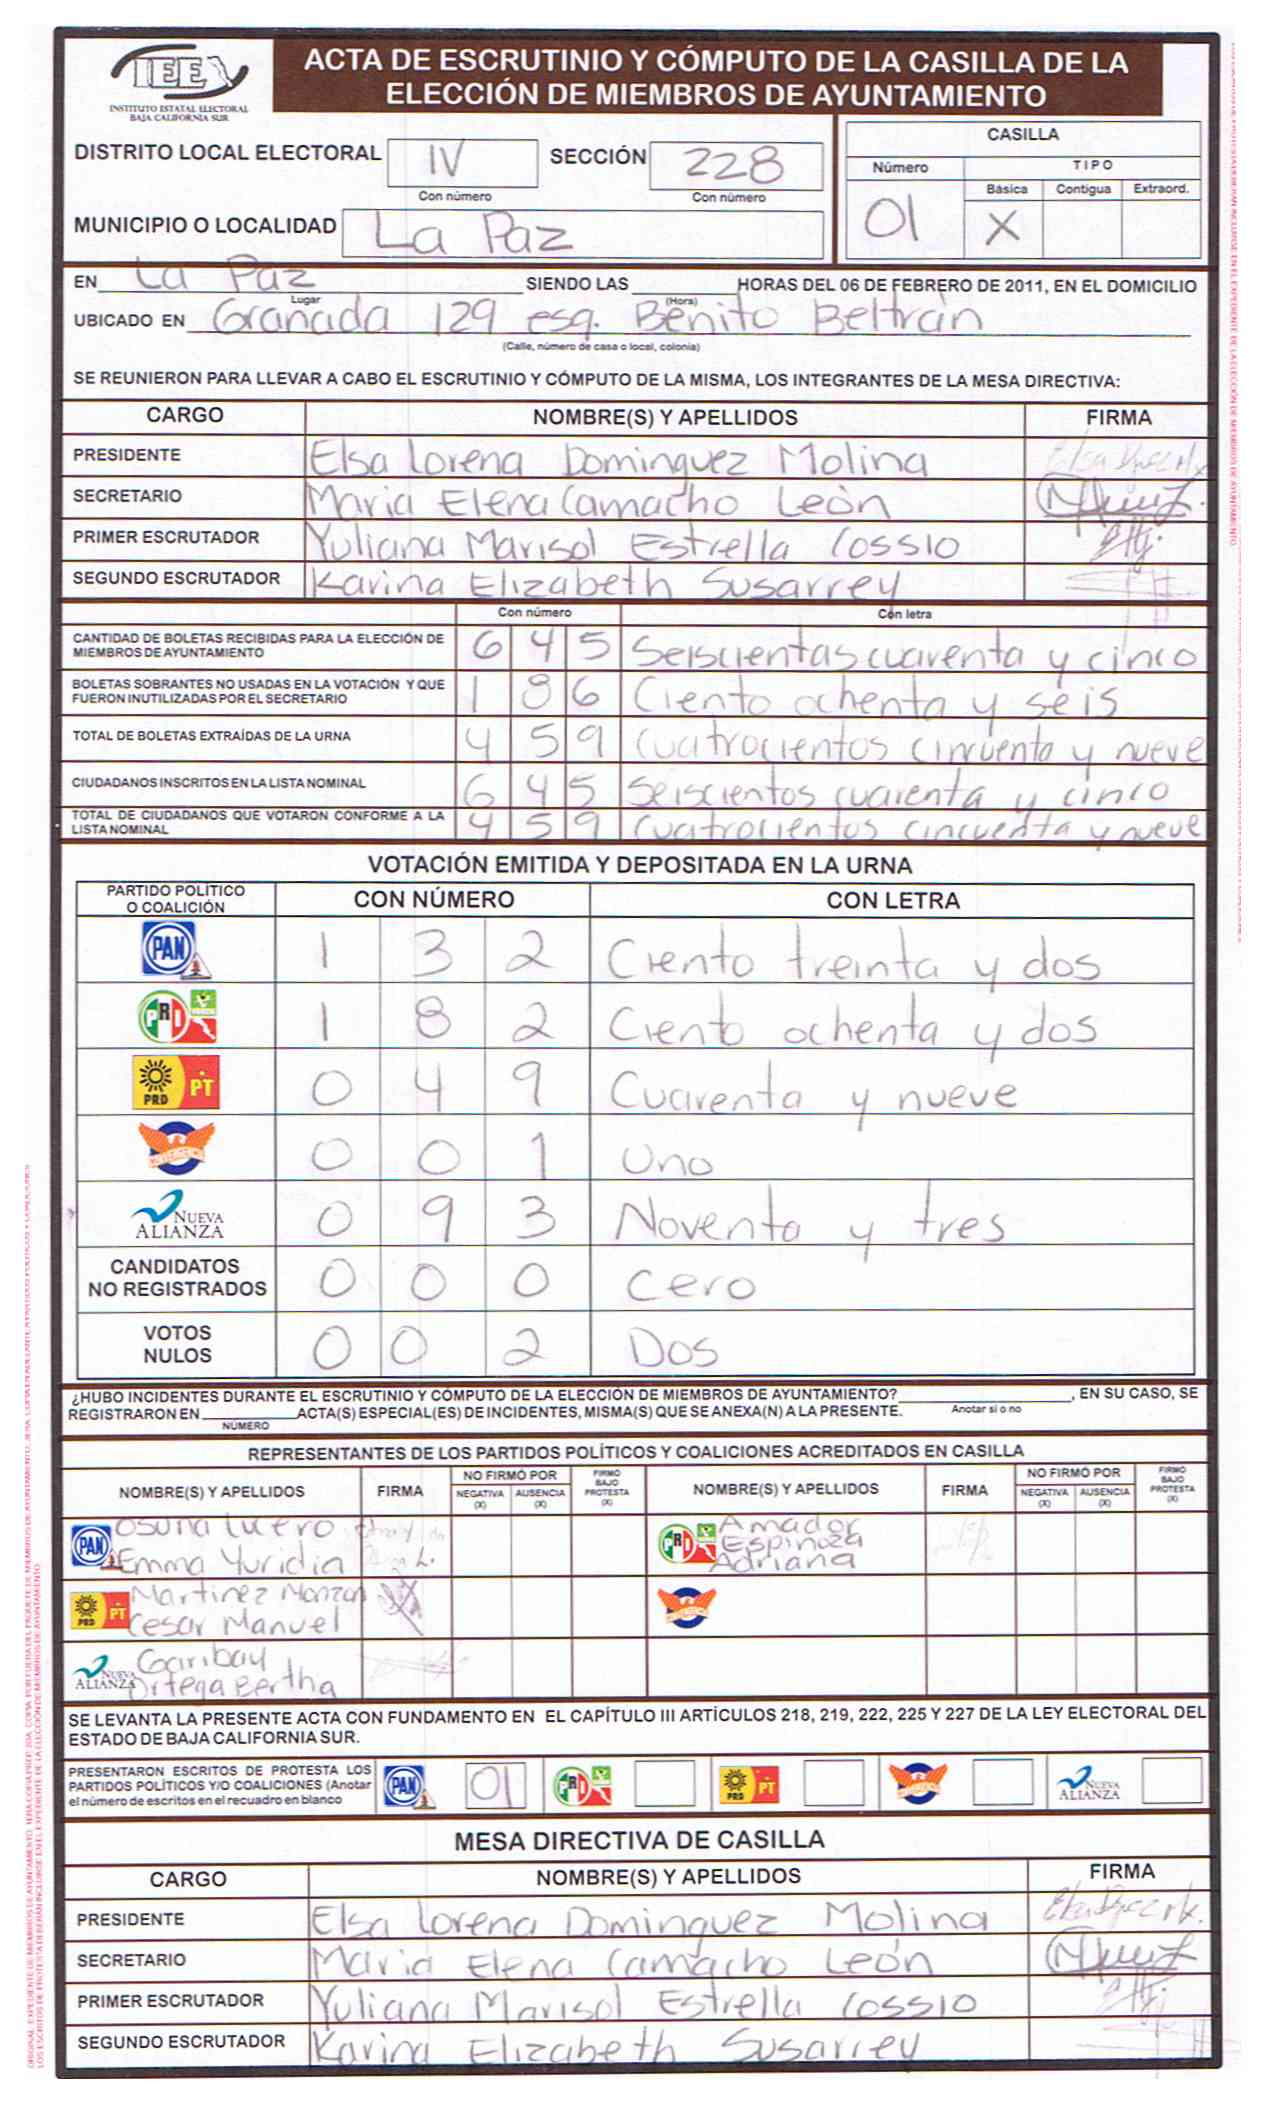 IEE
INSTITUTO ESTATAL ELECTORAL
BAJA CALIFORNIA SUR
ACTA DE ESCRUTINIO Y CÓMPUTO DE LA CASILLA DE LA
ELECCIÓN DE MIEMBROS DE AYUNTAMIENTO
DISTRITO LOCAL ELECTORAL IV SECCIÓN 228
Con número Con número
MUNICIPIO O LOCALIDAD La Paz
CASILLA
Número TIPO
Básica Contigua Extraord.
01 X
EN La Paz SIENDO LAS HORAS DEL 06 DE FEBRERO DE 2011, EN EL DOMICILIO
Lugar (Hora)
UBICADO EN Granada 129 esq. Benito Beltrán
(Calle, número de casa o local, colonia)
SE REUNIERON PARA LLEVAR A CABO EL ESCRUTINIO Y CÓMPUTO DE LA MISMA, LOS INTEGRANTES DE LA MESA DIRECTIVA:
CARGO NOMBRE(S) Y APELLIDOS FIRMA
PRESIDENTE Elsa Lorena Dominguez Molina
SECRETARIO Maria Elena Camacho León
PRIMER ESCRUTADOR Yuliana Marisol Estrella Cossio
SEGUNDO ESCRUTADOR Karina Elizabeth Susarrey
Con número Con letra
CANTIDAD DE BOLETAS RECIBIDAS PARA LA ELECCIÓN DE
MIEMBROS DE AYUNTAMIENTO 6 4 5 Seiscientas cuarenta y cinco
BOLETAS SOBRANTES NO USADAS EN LA VOTACIÓN Y QUE
FUERON INUTILIZADAS POR EL SECRETARIO 1 8 6 Ciento ochenta y seis
TOTAL DE BOLETAS EXTRAÍDAS DE LA URNA 4 5 9 Cuatrocientos cincuenta y nueve
CIUDADANOS INSCRITOS EN LA LISTA NOMINAL 6 4 5 Seiscientos cuarenta y cinco
TOTAL DE CIUDADANOS QUE VOTARON CONFORME A LA
LISTA NOMINAL 4 5 9 Cuatrocientos cincuenta y nueve
VOTACIÓN EMITIDA Y DEPOSITADA EN LA URNA
PARTIDO POLÍTICO
O COALICIÓN CON NÚMERO CON LETRA
PAN 1 3 2 Ciento treinta y dos
PRI 1 8 2 Ciento ochenta y dos
PRD PT 0 4 9 Cuarenta y nueve
0 0 1 Uno
NUEVA ALIANZA 0 9 3 Noventa y tres
CANDIDATOS
NO REGISTRADOS 0 0 0 Cero
VOTOS
NULOS 0 0 2 Dos
¿HUBO INCIDENTES DURANTE EL ESCRUTINIO Y CÓMPUTO DE LA ELECCIÓN DE MIEMBROS DE AYUNTAMIENTO? , EN SU CASO, SE
REGISTRARON EN ACTA(S) ESPECIAL(ES) DE INCIDENTES, MISMA(S) QUE SE ANEXA(N) A LA PRESENTE. Anotar si o no
NÚMERO
REPRESENTANTES DE LOS PARTIDOS POLÍTICOS Y COALICIONES ACREDITADOS EN CASILLA
NOMBRE(S) Y APELLIDOS FIRMA NO FIRMÓ POR NEGATIVA (X) AUSENCIA (X) FIRMÓ BAJO PROTESTA (X) NOMBRE(S) Y APELLIDOS FIRMA NO FIRMÓ POR NEGATIVA (X) AUSENCIA (X) FIRMÓ BAJO PROTESTA (X)
PAN Osuna Lucero
Emma Yuridia
PRI Amador
Espinoza
Adriana
PRD PT Martinez Monzon
Cesar Manuel
NUEVA ALIANZA Garibay
Ortega Bertha
SE LEVANTA LA PRESENTE ACTA CON FUNDAMENTO EN EL CAPÍTULO III ARTÍCULOS 218, 219, 222, 225 Y 227 DE LA LEY ELECTORAL DEL
ESTADO DE BAJA CALIFORNIA SUR.
PRESENTARON ESCRITOS DE PROTESTA LOS
PARTIDOS POLÍTICOS Y/O COALICIONES (Anotar
el número de escritos en el recuadro en blanco
PAN 01 PRI PRD PT NUEVA ALIANZA
MESA DIRECTIVA DE CASILLA
CARGO NOMBRE(S) Y APELLIDOS FIRMA
PRESIDENTE Elsa Lorena Dominguez Molina
SECRETARIO Maria Elena Camacho León
PRIMER ESCRUTADOR Yuliana Marisol Estrella Cossio
SEGUNDO ESCRUTADOR Karina Elizabeth Susarrey